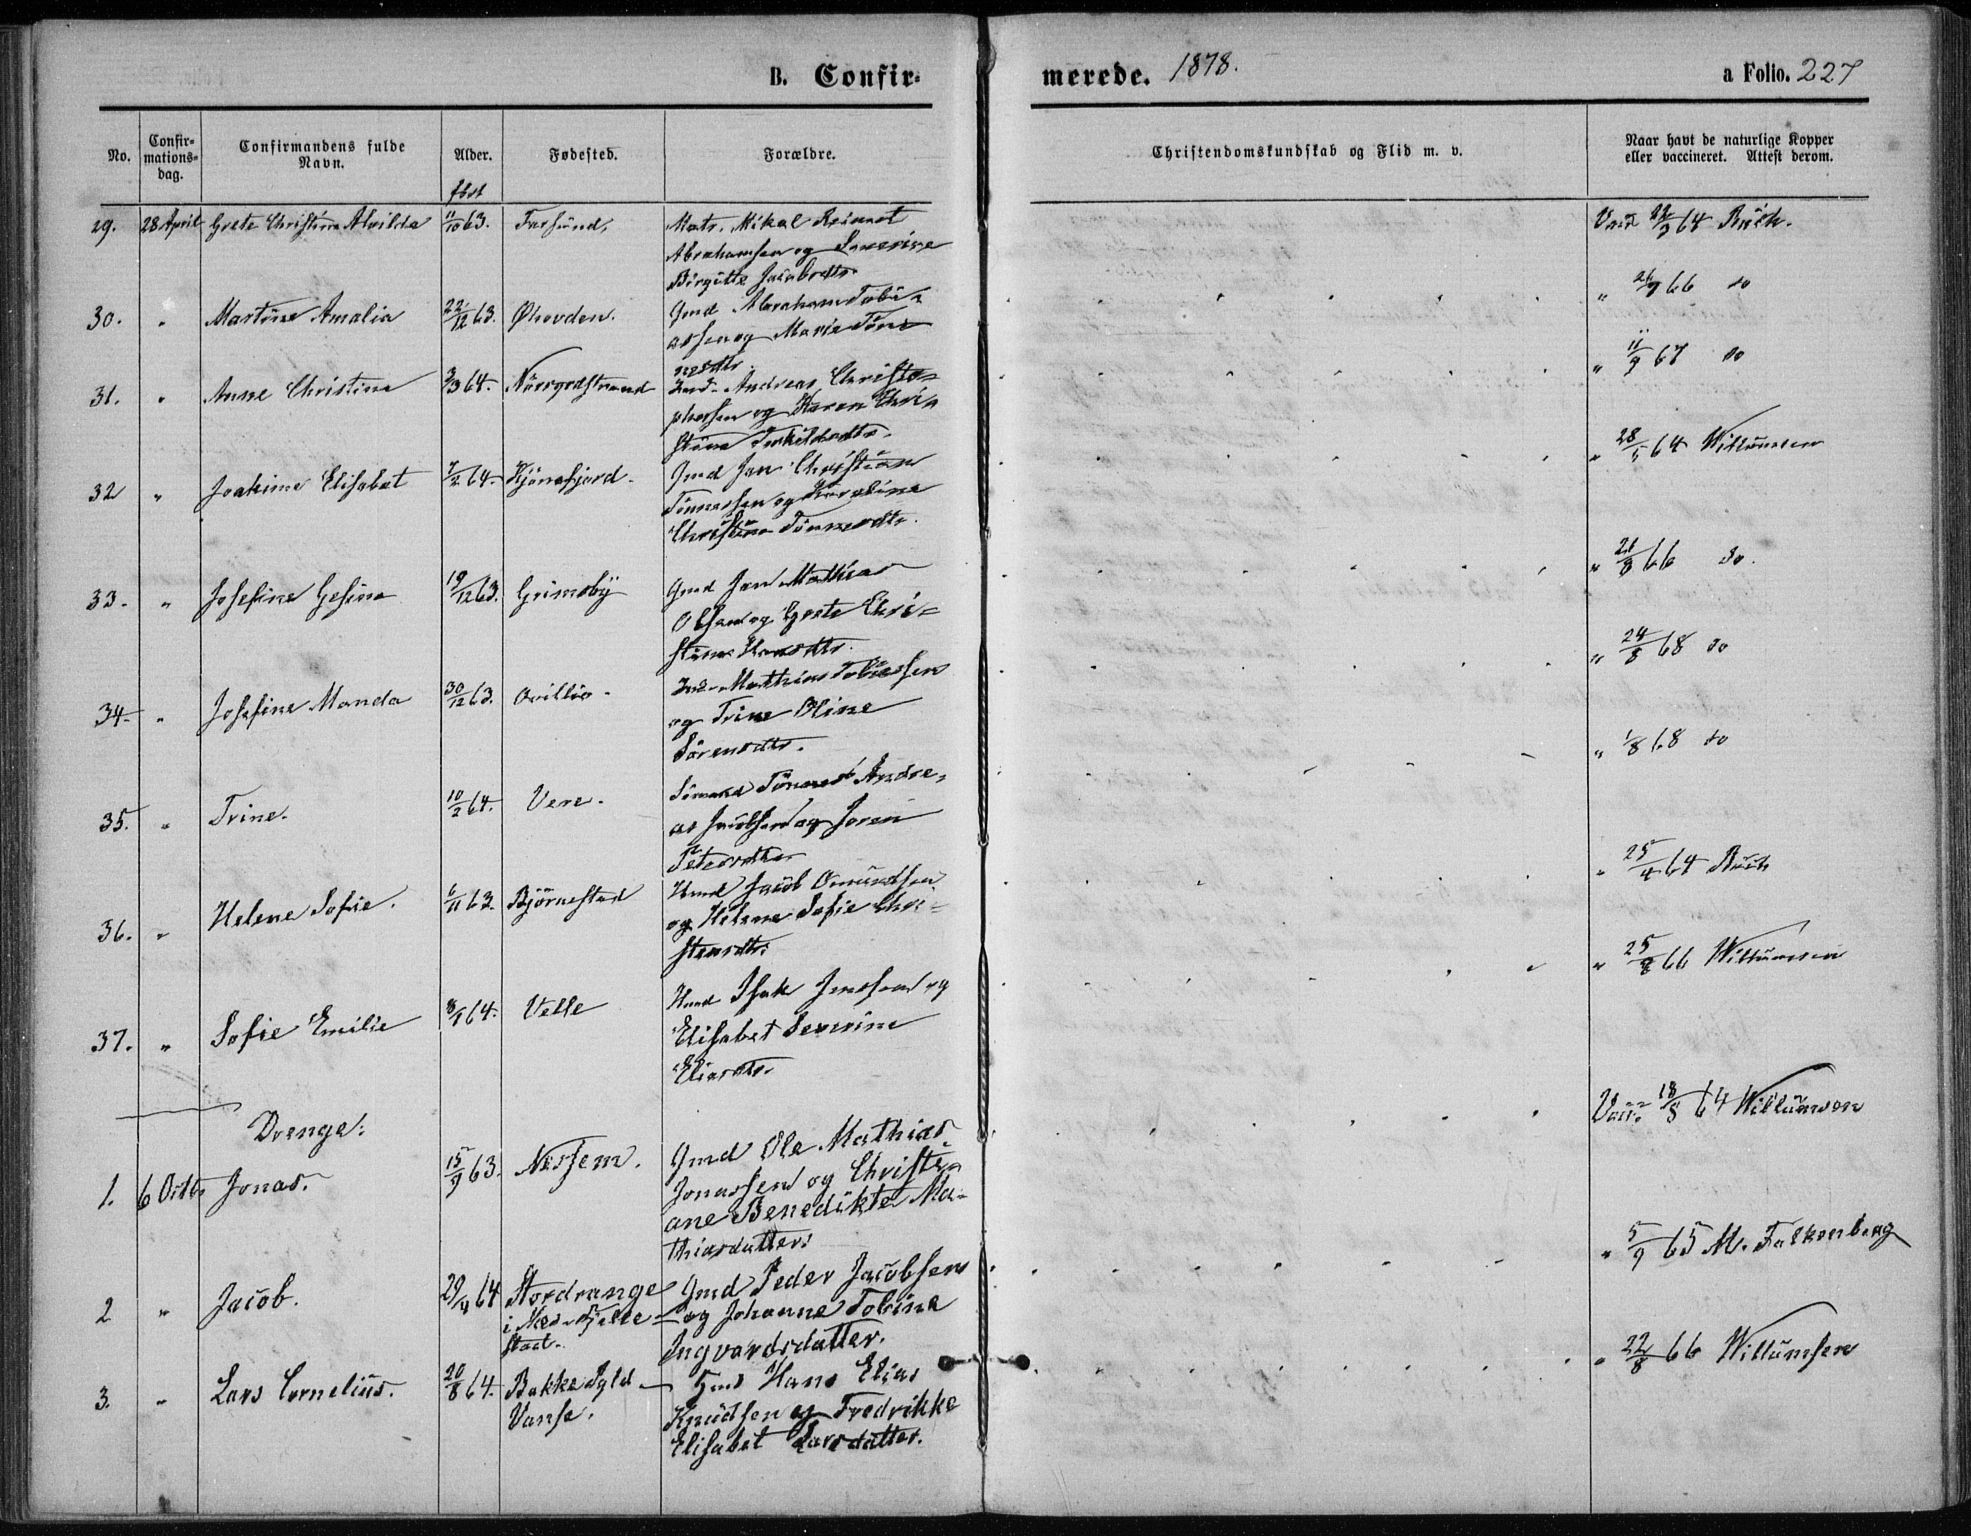 B. Confir-
merede. 1878.
a Folio. 227
No.
Confir-
mations-
dag.
Confirmandens fulde
Navn.
Alder.
Fødested.
Forældre.
Christendomskundskab og Flid m. v.
Naar havt de naturlige Kopper
eller vaccineret. Attest derom.
født
29. 28 April Grete Christine Alvilda 11/10 63. Farsund, Matr. Mikal Reinert
Abrahamsen og Severine
Birgitte Jacobsdtr.
64 Buch.
30. " Martine Amalia 22/12 63. Øhovden. Gmd Abraham Tobi-
assen og Marie Tøn-
nesdtr
" 66 do
31. " Anne Christine 3/3 64. Andreas Christo-
phersen og Karen Chri-
stine Terkildsdtr.
" 11/9 67 do
32 " Joakime Elisabet 64. Gmd Jan Christian
Tønnessen og Karoline
Christine Tønnesdtr.
" 28/5 64 Willumsen
33. " Josefine Gesine 19/12 63. Grimsby Gmd Jan Mathias
Olsen og Grete Chri-
stine
" 21/8 66 do.
34. " Josefine Manda 30/12 63. Mathias Tobiassen
og Trine Oline
Sørensdtr.
" 24/8 68 do
35. " Trine. 10/2 64. Vere. Sømand Tønnes Andre-
as Jacobsen og Joren
Petersdtr
" 1/8 68 do
36. " Helene Sofie. 6/11 63. Bjørnestad Hmd Jacob Omundsen
og Helene Sofie Chri-
stensdtr.
" 25/4 64 Buch
37. " Sofie Emilie 64. Velle Hmd Isak Jensen og
Elisabet Severine
Eliasdtr.
" 66 Willumsen
Drenge:
1. 6 Octb Jonas. 15/9 63. Nessem. Gmd Ole Mathias
Jonassen og Christi-
ane Benedikte Ma-
thiasdatter
Vacc. 18/8 64 Willumsen
2 " Jacob. 29/4 64 Nordrange
i
stad.
Gmd Peder Jacobsen
og Johanne Tobine
Ingvardsdatter.
" 5/9 65 M. Falkenberg
3. " Lars Cornelius. 20/8 64. Bakke
Vanse.
Hans Elias
Knudsen og Fredrikke
Elisabet Larsdatter.
" 22/8 66 Willumsen